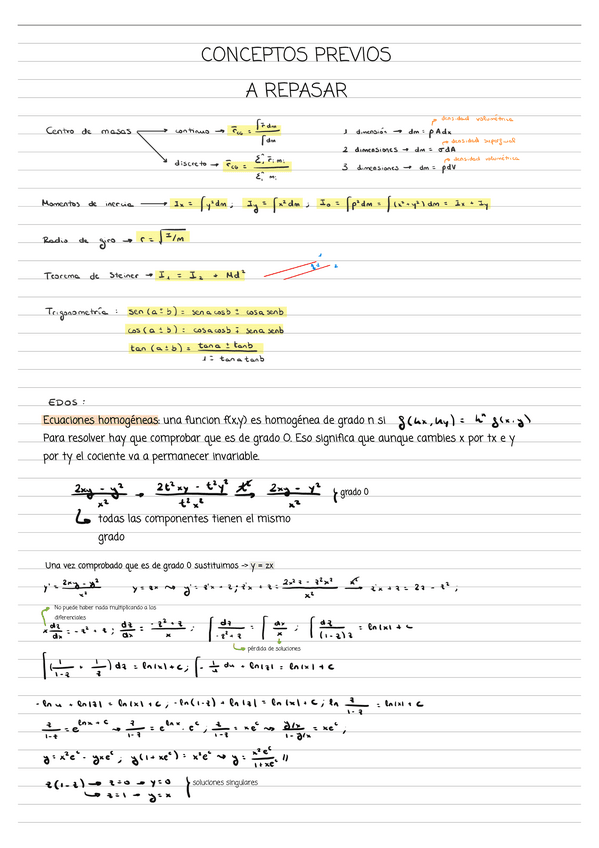 CONCEPTOS PREVIOS
A REPASAR
Centro de masas → continuo → r̄CG = ∫r̄dm / ∫dm
→ discreto → r̄CG = Σ r̄i mi / Σ mi
densidad volumétrica
1 dimensión → dm = ρAdx
densidad superficial
2 dimensiones → dm = σdA
densidad volumétrica
3 dimensiones → dm = ρdV
Momentos de inercia → Ix = ∫y²dm ; Iy = ∫x²dm ; I₀ = ∫ρ²dm = ∫(x²+y²)dm = Ix + Iy
Radio de giro → r = √I/M
Teorema de Steiner → I₁ = I₂ + Md²
1 d 2
Trigonometría : sen(a±b) = sena cosb ± cosa senb
cos(a±b) = cosa cosb ∓ sena senb
tan(a±b) = tana ± tanb / 1 ∓ tana tanb
EDOS :
Ecuaciones homogéneas: una funcion f(x,y) es homogénea de grado n si f(kx,ky) = kⁿ f(x·y)
Para resolver hay que comprobar que es de grado 0. Eso significa que aunque cambies x por tx e y
por ty el cociente va a permanecer invariable.
2xy - y² / x² → 2t²xy - t²y² / t²x² t² → 2xy - y² / x² } grado 0
todas las componentes tienen el mismo
grado
Una vez comprobado que es de grado 0 sustituimos -> y = zx
y' = 2xy - y² / x² y = zx → y' = z'x + z ; z'x + z = 2x²z - z²x² / x² x² → z'x + z = 2z - z² ;
No puede haber nada multiplicando a los
diferenciales
x dz/dx = -z² + z ; dz/dx = -z² + z / x ; ∫ dz / -z²+z = ∫ dx/x ; ∫ dz / (1-z)z = ln|x| + C
pérdida de soluciones
∫(1/1-z + 1/z) dz = ln|x| + C ; ∫ - 1/u du + ln|z| = ln|x| + C
- ln u + ln|z| = ln|x| + C ; -ln(1-z) + ln|z| = ln|x| + C ; ln z/1-z = ln|x| + C
z/1-z = e^lnx+c → z/1-z = e^lnx · e^c ; z/1-z = xe^c → y/x / 1-y/x = xe^c ;
y = x²e^c - yxe^c ; y(1+xe^c) = x²e^c → y = x²e^c / 1+xe^c //
z(1-z) → z=0 → y=0 } soluciones singulares
→ z=1 → y=x